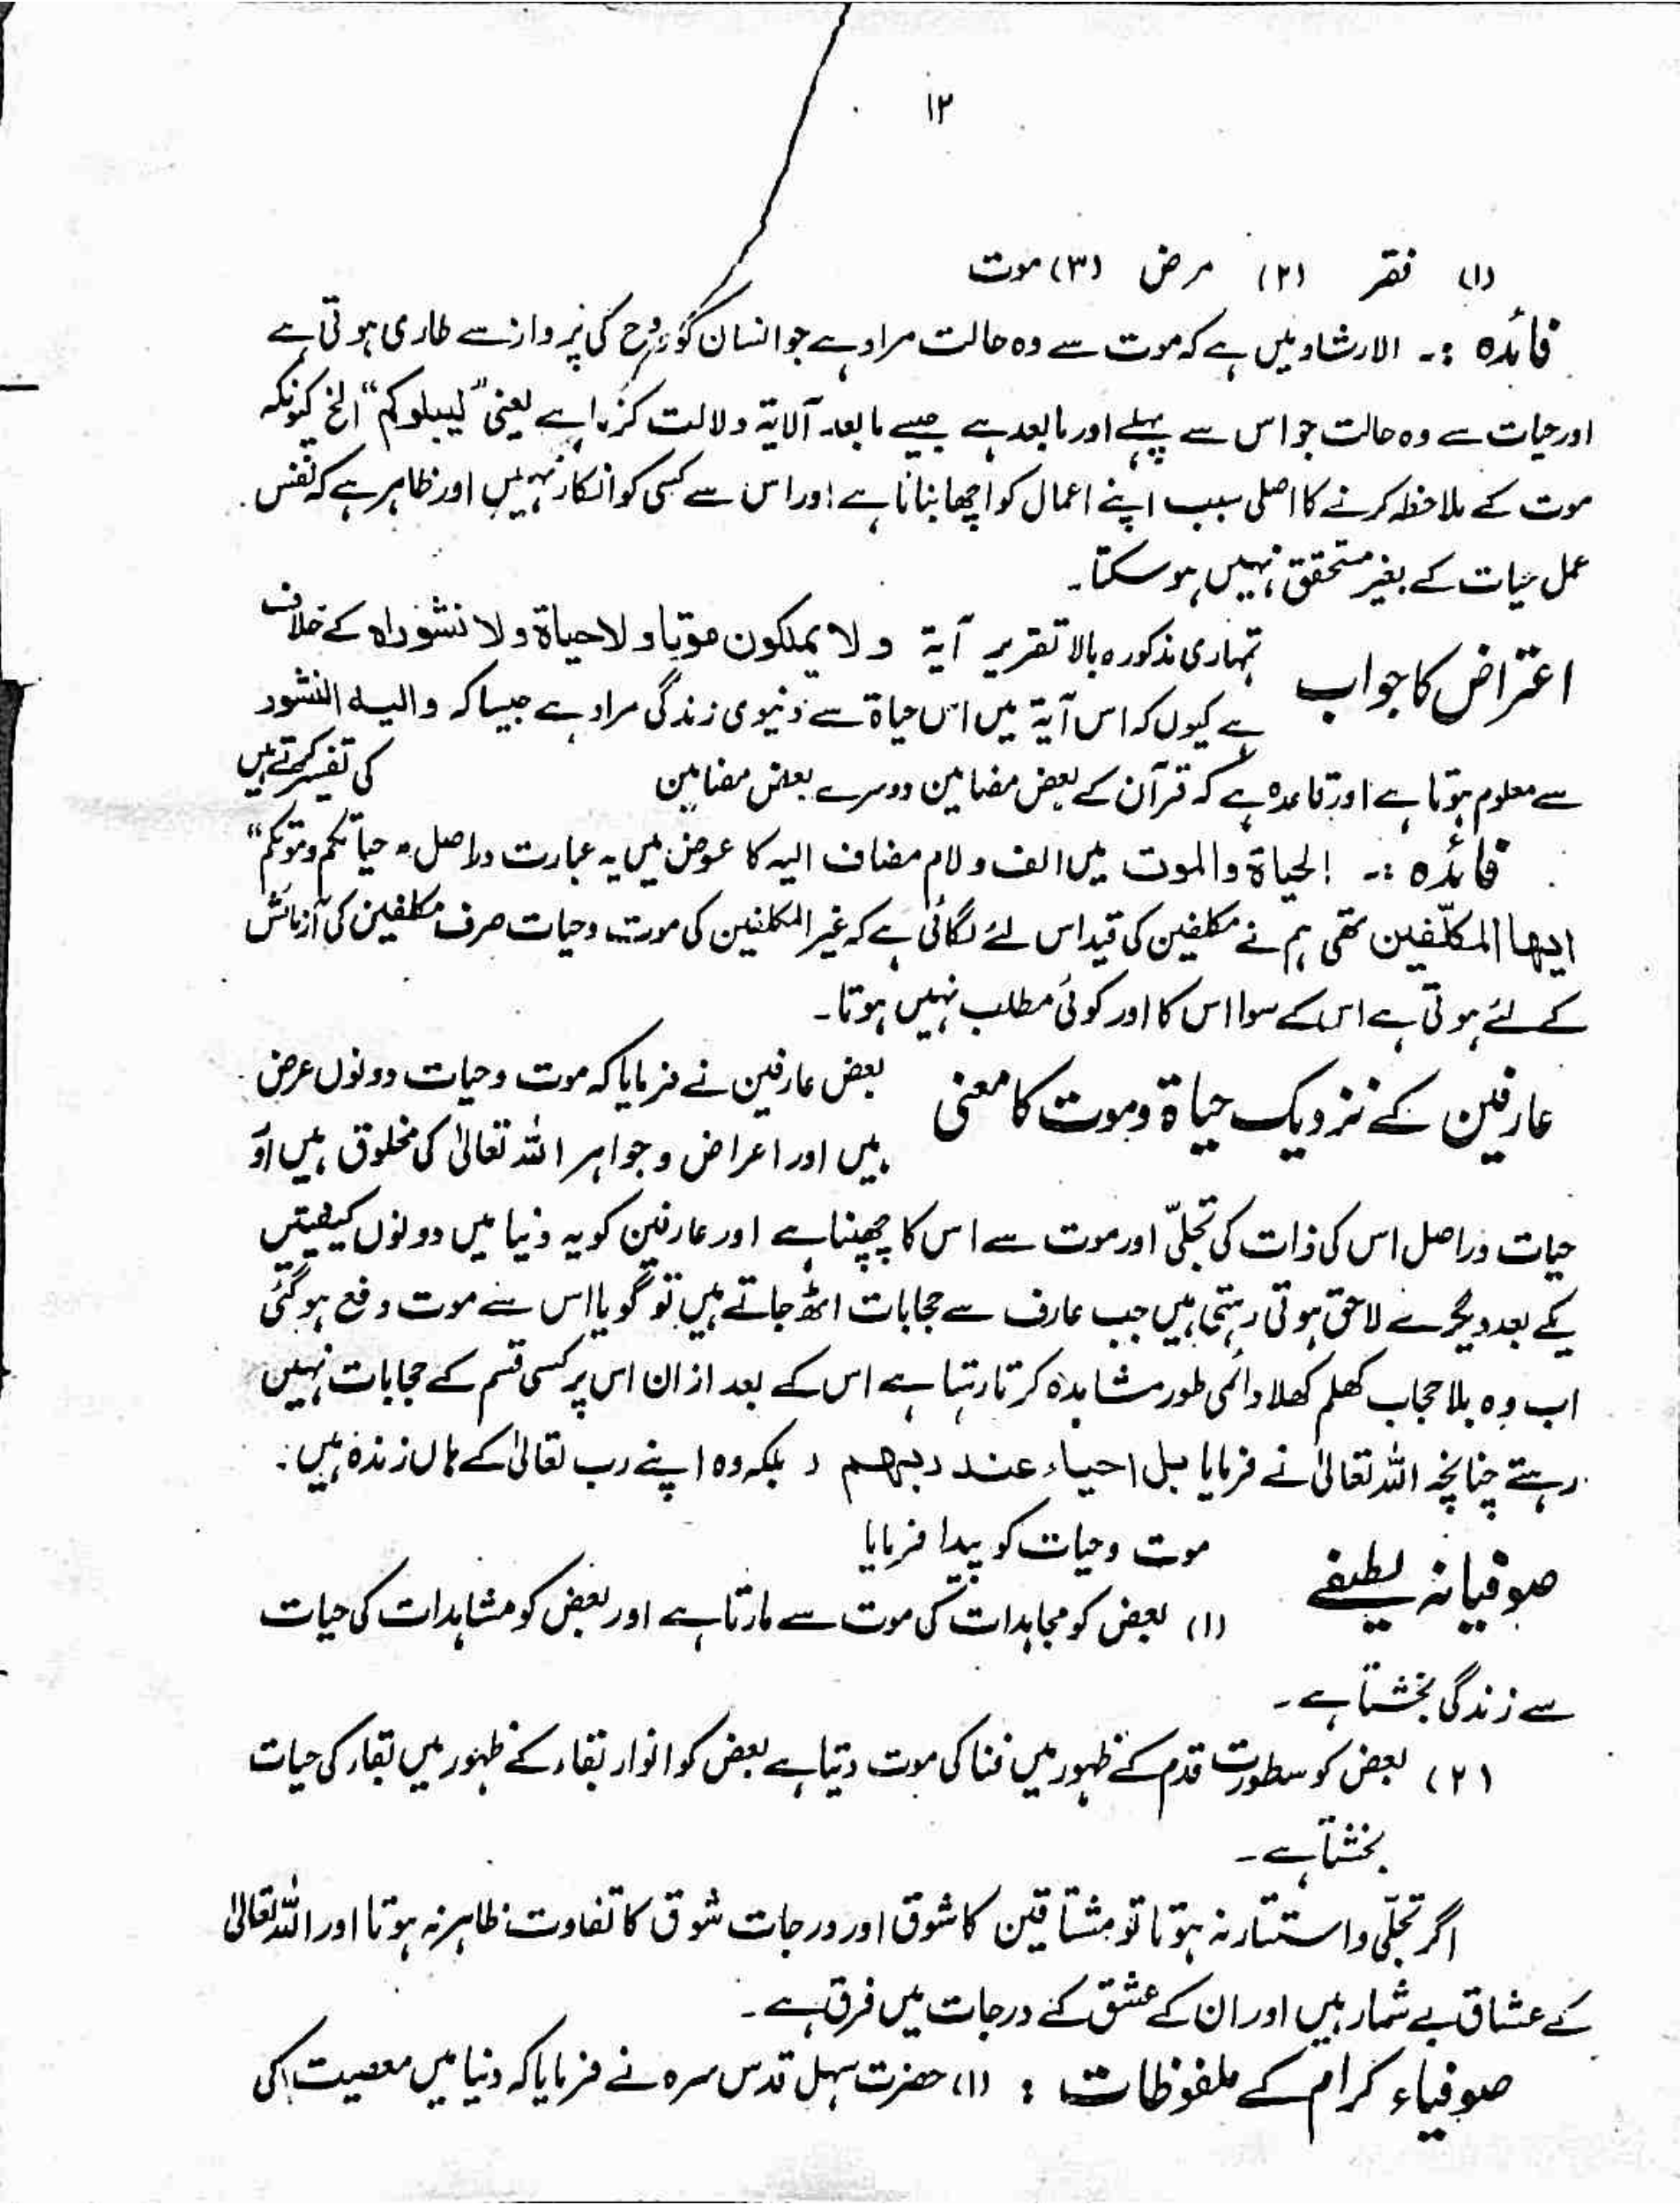 ۱۲
(۱) فقر (۲) مرض (۳) موت
فائدہ :۔ الارشاد میں ہے کہ موت سے وہ حالت مراد ہے جو انسان کو روح کی پرواز سے طاری ہوتی ہے
اور حیات سے وہ حالت جو اس سے پہلے اور مابعد ہے جیسے مابعد آلایۃ دلالت کرتا ہے یعنی "لیبلوکم" الخ کیونکہ
موت کے ملاحظہ کرنے کا اصلی سبب اپنے اعمال کو اچھا بنانا ہے اور اس سے کسی کو انکار نہیں اور ظاہر ہے کہ نفس
عمل حیات کے بغیر متحقق نہیں ہو سکتا۔
اعتراض کا جواب تمہاری مذکورہ بالا تقریر آیۃ ولا یملکون موتا ولا حیاۃ ولا نشورا ہ کے خلاف
ہے کیوں کہ اس آیۃ میں اس حیاۃ سے دنیوی زندگی مراد ہے جیسا کہ والیہ النشور
سے معلوم ہوتا ہے اور قاعدہ ہے کہ قرآن کے بعض مضامین دوسرے بعض مضامین کی تفسیر کرتے ہیں
فائدہ :۔ الحیاۃ والموت میں الف و لام مضاف الیہ کا عوض میں یہ عبارت دراصل " حیاتکم وموتکم"
ایھا المکلّفین تھی ہم نے مکلفین کی قید اس لئے لگائی ہے کہ غیر المکلفین کی موت و حیات صرف مکلفین کی آزمائش
کے لئے ہوتی ہے اس کے سوا اس کا اور کوئی مطلب نہیں ہوتا۔
عارفین کے نزدیک حیاۃ و موت کا معنی بعض عارفین نے فرمایا کہ موت و حیات دونوں عرض
ہیں اور اعراض و جواہر اللہ تعالیٰ کی مخلوق ہیں اور
حیات دراصل اس کی ذات کی تجلّی اور موت سے اس کا چھپنا ہے اور عارفین کو یہ دنیا میں دونوں کیفیتیں
یکے بعد دیگرے لاحق ہوتی رہتی ہیں جب عارف سے حجابات اٹھ جاتے ہیں تو گویا اس سے موت دفع ہو گئی
اب وہ بلا حجاب کھلم کھلا دائمی طور مشاہدہ کرتا رہتا ہے اس کے بعد ازان اس پر کسی قسم کے حجابات نہیں
رہتے چنانچہ اللہ تعالیٰ نے فرمایا بل احیاء عند ربھم د بلکہ وہ اپنے رب تعالیٰ کے ہاں زندہ ہیں۔
صوفیانہ لطیفے موت و حیات کو پیدا فرمایا
(۱) بعض کو مجاہدات کی موت سے مارتا ہے اور بعض کو مشاہدات کی حیات
سے زندگی بخشتا ہے۔
(۲) بعض کو سطورت قدم کے ظہور میں فنا کی موت دیتا ہے بعض کو انوار بقاء کے ظہور میں بقاء کی حیات
بخشتا ہے۔
اگر تجلّی و استتار نہ ہوتا تو مشتاقین کا شوق اور درجات شوق کا تفاوت ظاہر نہ ہوتا اور اللہ تعالیٰ
کے عشاق بے شمار ہیں اور ان کے عشق کے درجات میں فرق ہے۔
صوفیاء کرام کے ملفوظات : (۱) حضرت سہل قدس سرہ نے فرمایا کہ دنیا میں معصیت کی